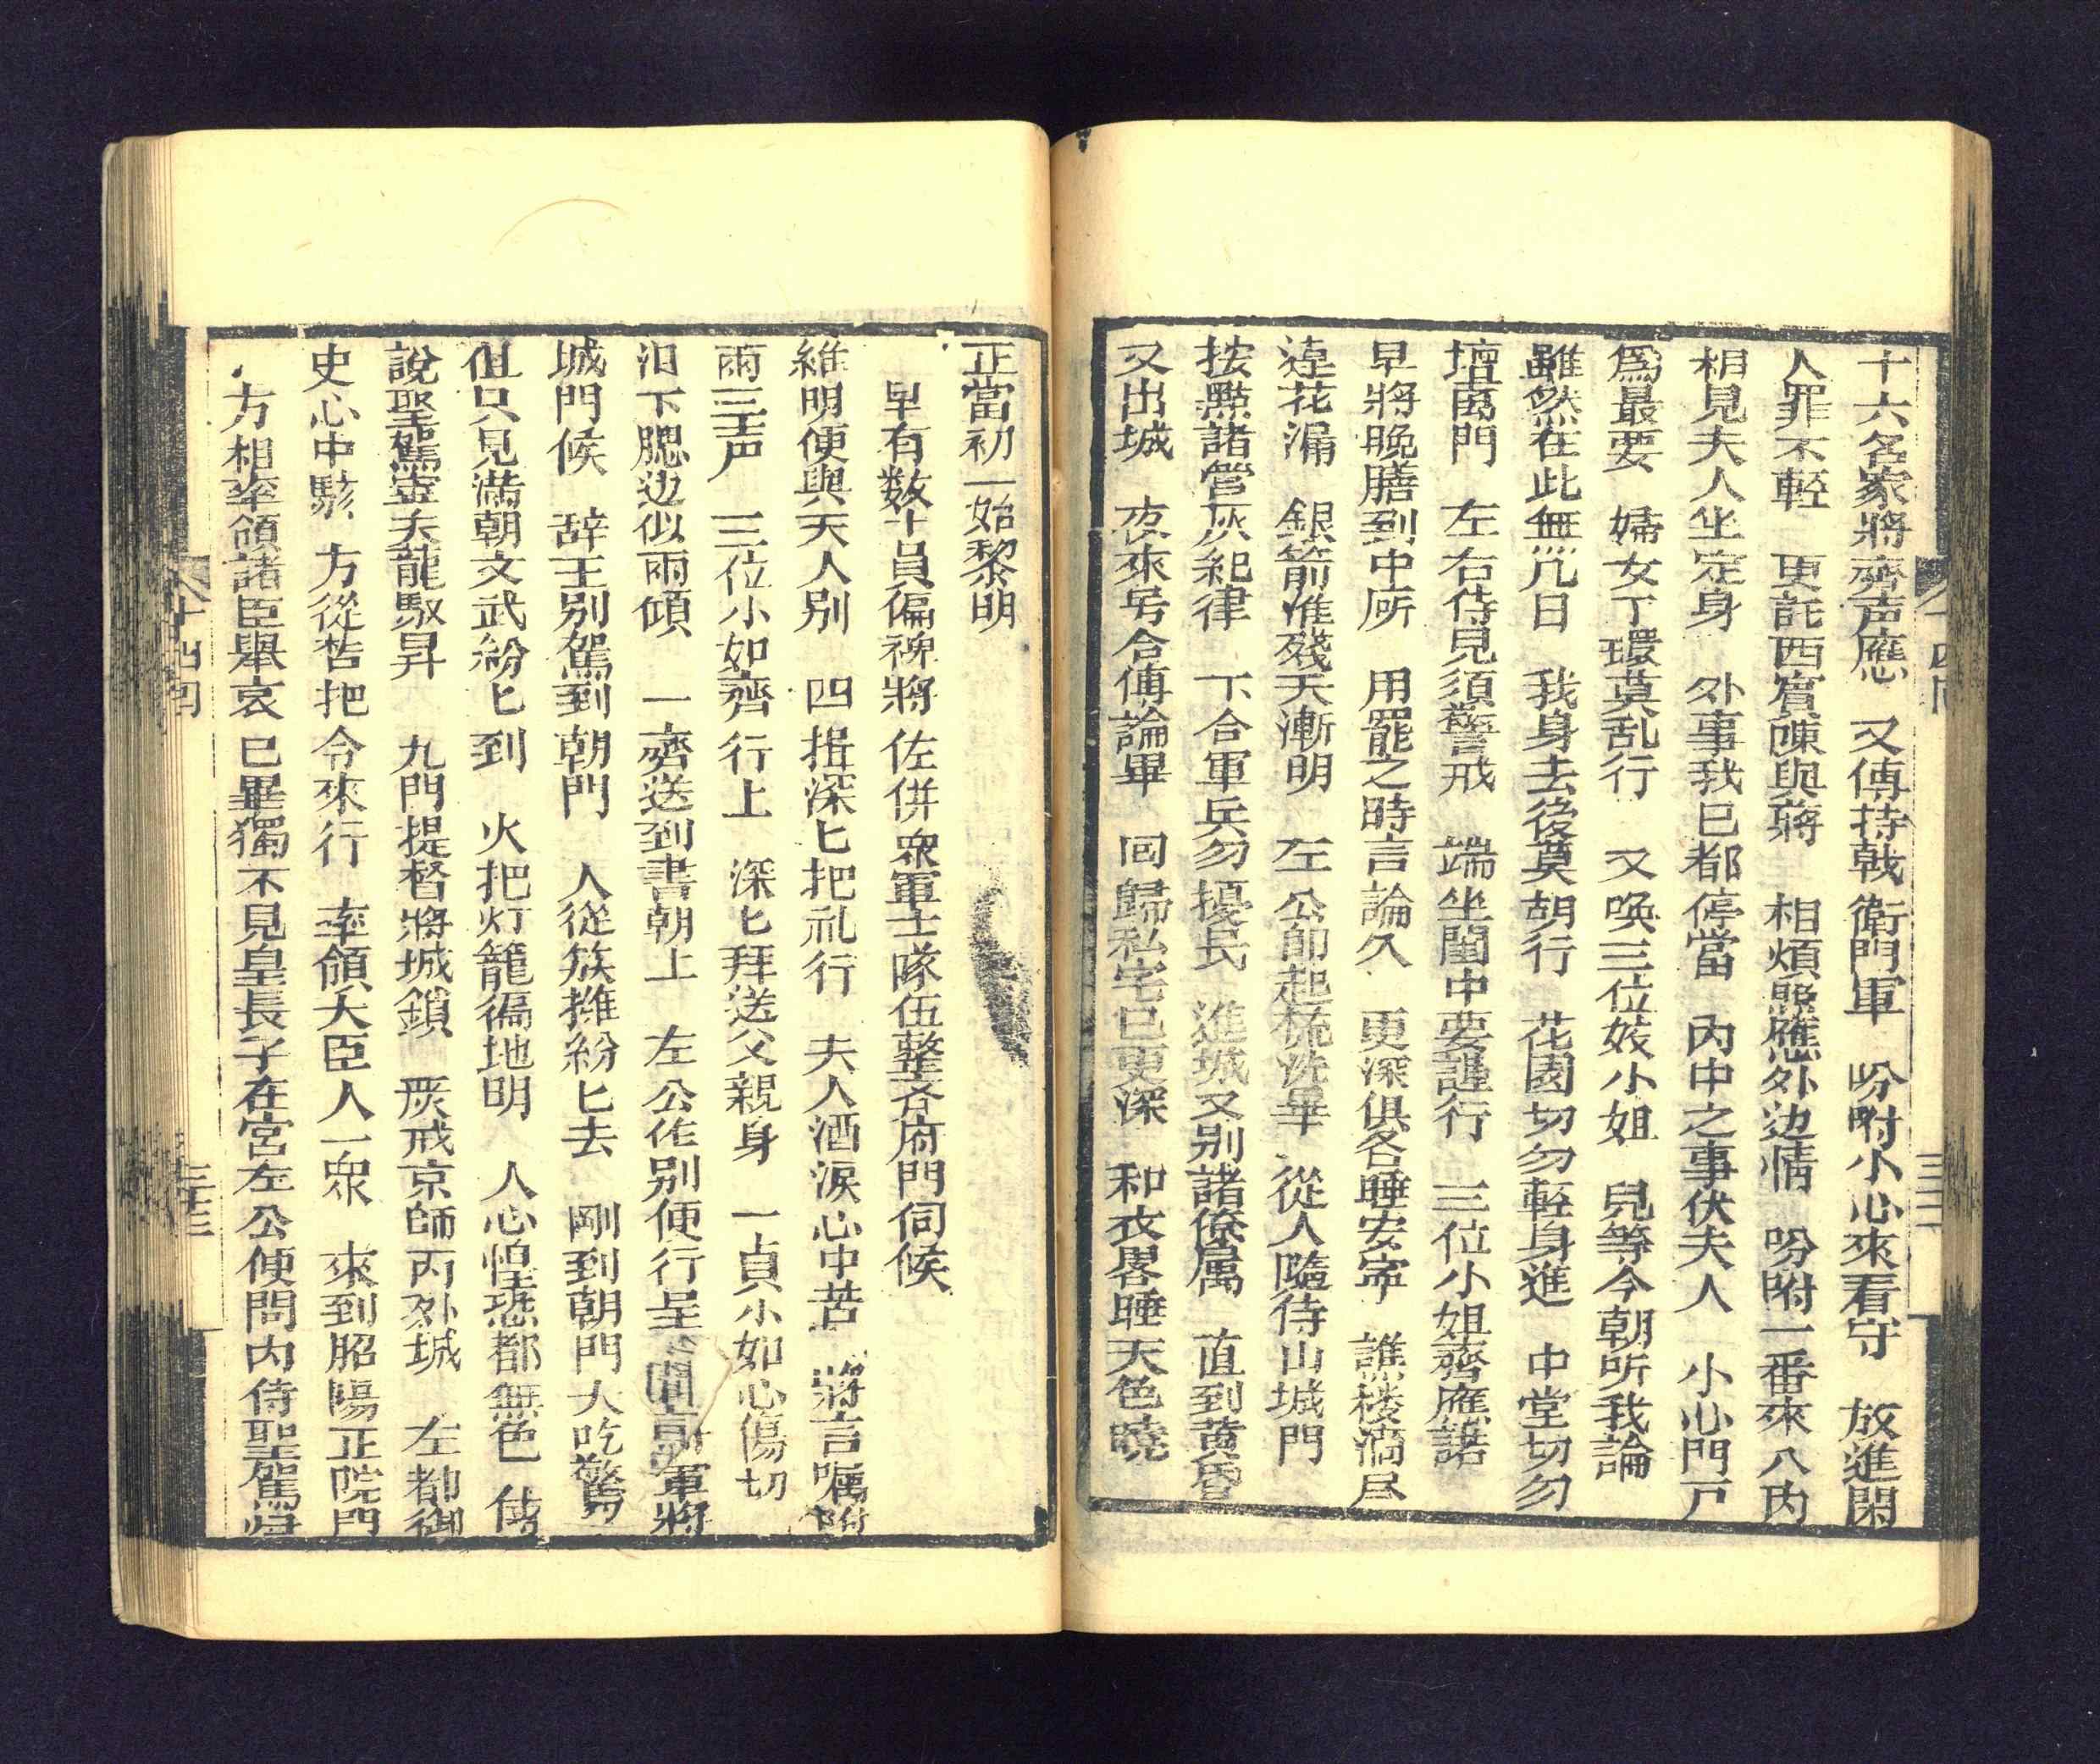 十六名家將齊声應　又傳持戟衛門軍　吩咐小心來看守　放進閑
人罪不輕　更託西賓陳與蔣　相煩照應外边情　吩咐一番來八内
相見夫人坐定身　外事我已都停當　内中之事伏夫人　小心門戸
爲最要　婦女丫環莫乱行　又唤三位姣小姐　兒等今朝听我論
雖然在此無几日　我身去後莫胡行　花園切勿輕身進　中堂切勿
壇离門　左右侍見須警戒　端坐閨中要謹行　三位小姐齊應諾
早將晚膳到中所　用罷之時言論久　更深俱各睡安寧　譙楼滴尽
莲花漏　銀箭准殘天漸明　左公卽起梳洗畢　從人隨待山城門
按點諸營灰紀律　下合軍兵勿擾民　進城又别諸僚属　直到黄昏
又出城　夜來号合傳論畢　回歸私宅已更深　和衣畧睡天色曉
正當初一始黎明
早有数十員偏裨將佐併衆軍士隊伍整齐府門伺候
維明便與夫人别　四揖深匕把礼行　夫人洒淚心中苦　將言嘱咐
兩三声　三位小如齊行上　深匕拜送父親身　一貞小如心傷切
泪下腮边似雨傾　一齊送到書朝上　左公作别便行呈　軍將
城門候　辞王别駕到朝門　人從簇擁紛匕去　剛到朝門大吃驚
但只見滿朝文武紛匕到　火把灯籠徧地明　人心怕恐都無色　傳
說聖駕宾天龍馭昇　九門提督將城鎖　厳戒京師内外城　左都御
史心中駭　方從哲把令來行　率領大臣人一衆　來到昭陽正院門
方相率領諸臣舉哀已畢獨不見皇長子在宮左公便問内侍聖駕归
十四回
三十三